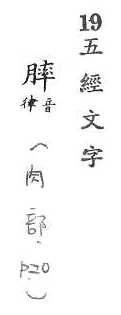 19五經文字
膟音律(肉部,P20)